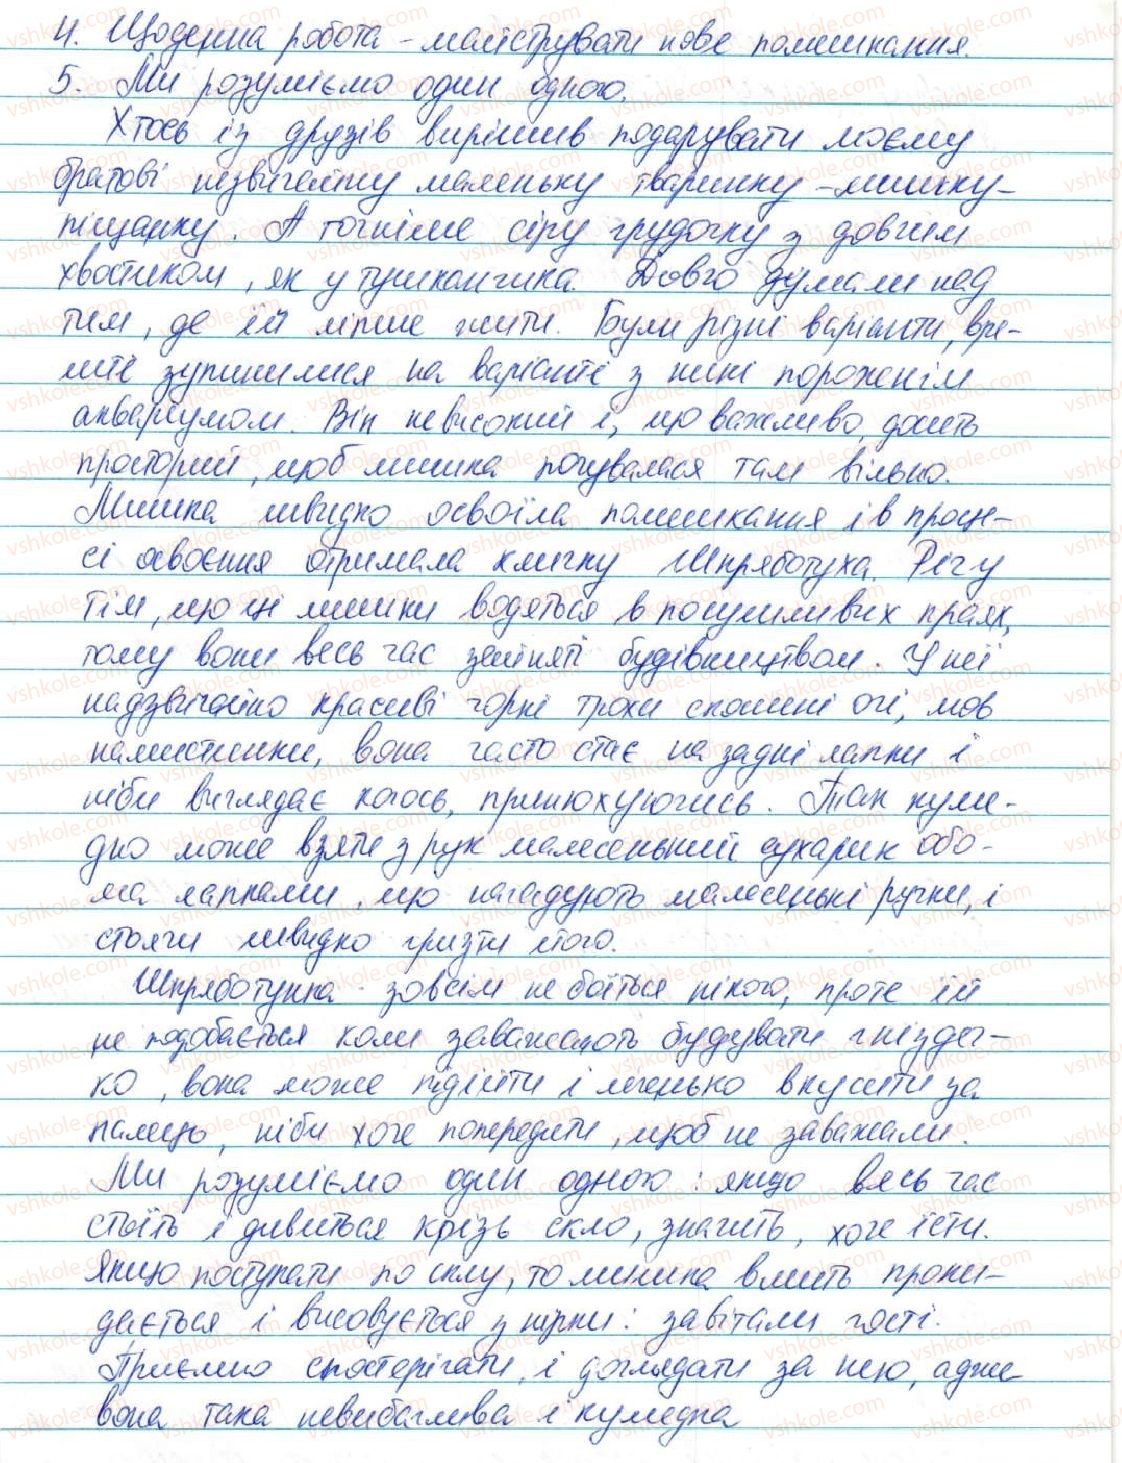 4. Щоденна робота – майструвати нове помешкання.
5. Ми розуміємо один одного.
Хтось із друзів вирішив подарувати моєму
братові незвичайну маленьку тваринку – мишку-
піщанку. А точніше сіру грудочку з довгим
хвостиком, як у тушканчика. Довго думали над
тим, де їй ліпше жити. Були різні варіанти, вре-
шті зупинилися на варіанті з нині порожнім
акваріумом. Він невисокий і, що важливо, досить
просторий, щоб мишка почувалася там вільно.
Мишка швидко освоїла помешкання і в проце-
сі освоєння отримала кличку Шкряботуха. Річ у
тім, що ці мишки водяться в посушливих краях,
тому вони весь час зайняті будівництвом. У неї
надзвичайно красиві чорні трохи скошені очі, мов
намистинки, вона часто стає на задні лапки і
ніби виглядає когось, принюхуючись. Так куме-
дно може взяти з рук малесенький сухарик обо-
ма лапками, що нагадують малесенькі ручки, і
стоячи швидко гризти його.
Шкряботунка зовсім не боїться нікого, проте їй
не подобається коли заважають будувати гніздеч-
ко, вона може підійти і легенько вкусити за
палець, ніби хоче попередити, щоб не заважали.
Ми розуміємо один одного: якщо весь час
стоїть і дивиться крізь скло, значить, хоче їсти.
Якщо постукати по склу, то мишка вмить проки-
дається і висовується з нірки: завітали гості.
Приємно спостерігати, і доглядати за нею, адже
вона така невибаглива і кумедна